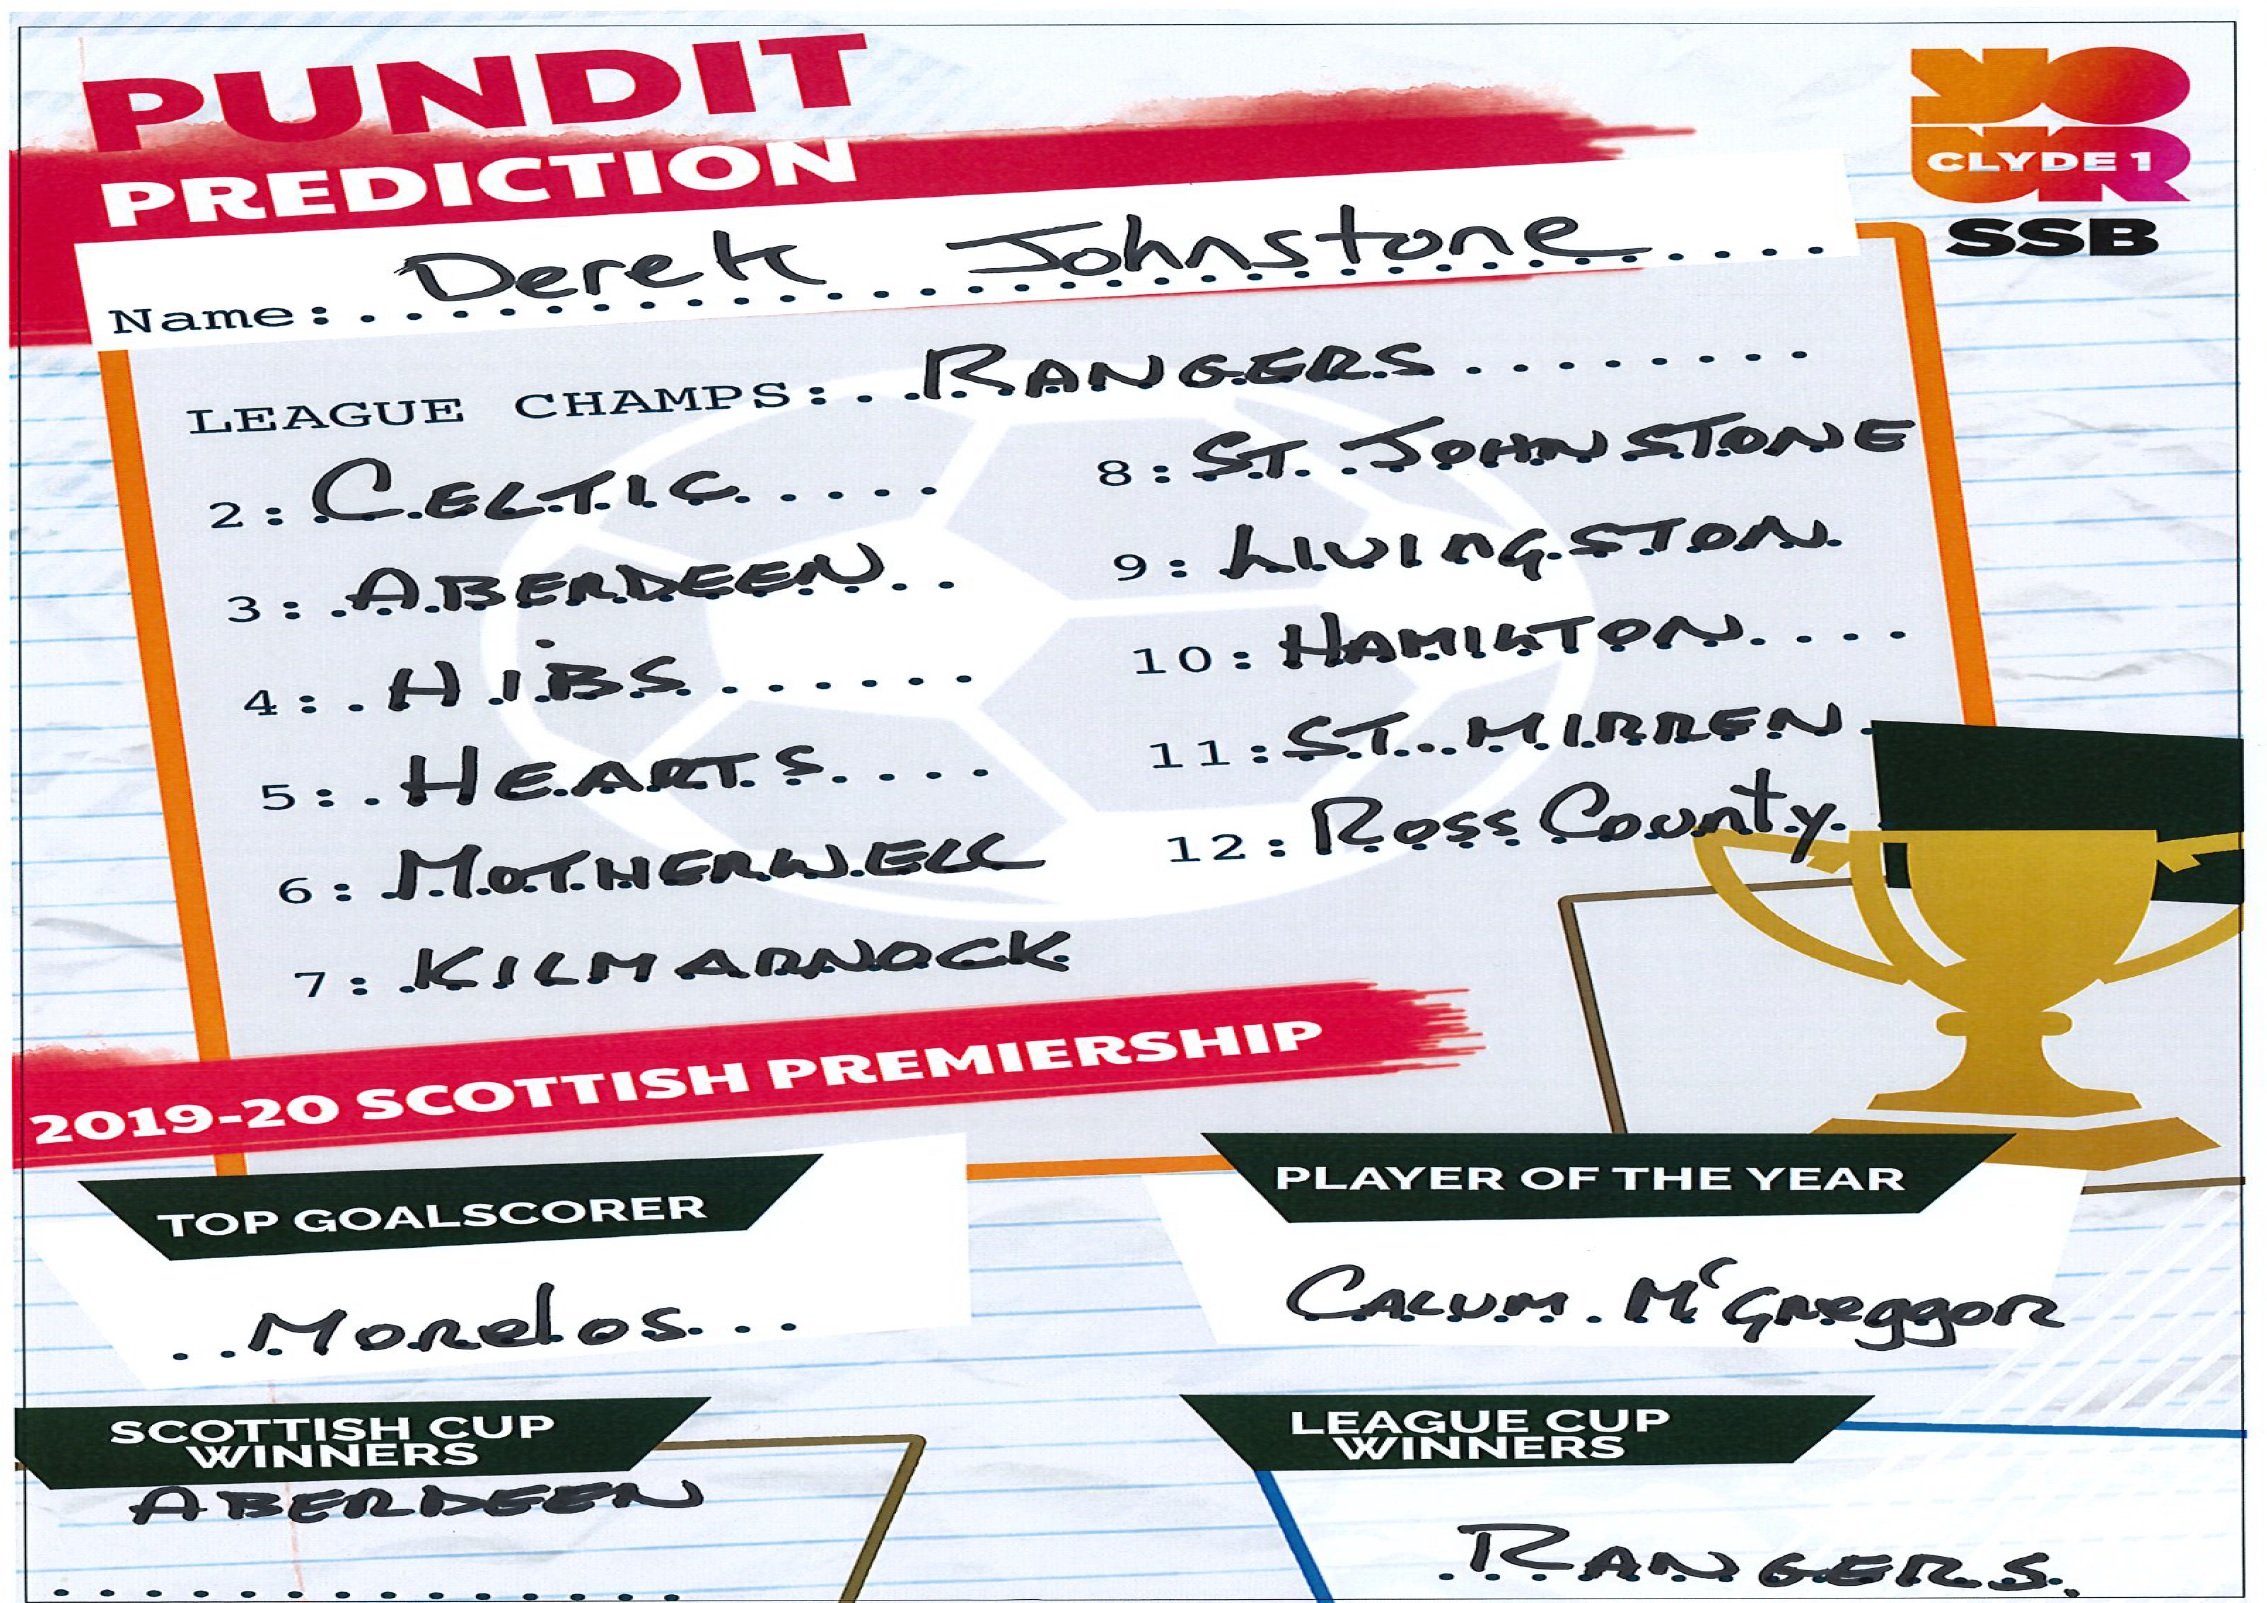 PUNDIT
PREDICTION
YO
UR
CLYDE 1
SSB
Name: Derek Johnstone
LEAGUE CHAMPS: RANGERS
2: CELTIC
3: ABERDEEN
4: HIBS
5: HEARTS
6: MOTHERWELL
7: KILMARNOCK
8: ST. JOHNSTONE
9: LIVINGSTON
10: HAMILTON
11: ST. MIRREN
12: Ross County
2019-20 SCOTTISH PREMIERSHIP
TOP GOALSCORER
Morelos
PLAYER OF THE YEAR
CALUM McGreggor
SCOTTISH CUP
WINNERS
ABERDEEN
LEAGUE CUP
WINNERS
RANGERS.